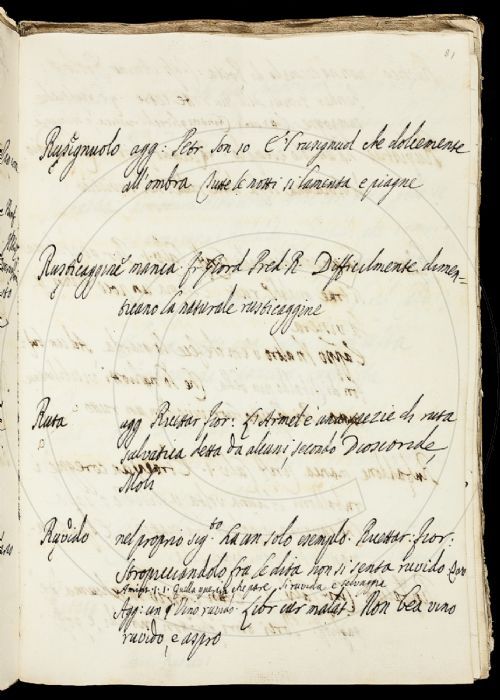 81
Rusignuolo agg: Petr son 10 E'l rusignuol che dolcemente
all'ombra Tutte le notti si lamenta e piagne
Rusticaggine manca fr Giord Pred R. Difficilmente dimen-
ticano la naturale rusticaggine
Ruta agg Ricettar fior. L'Armol è una spezie di ruta
salvatica detta da alcuni, secondo Dioscoride,
Moli
Ruvido nel proprio sig.to ha un solo esempio. Ricettar. fior.
Stropicciandolo fra le dita non si senta ruvido
Quella quercia che pare sì ruvida e selvaggia
Agg: un Vino ruvido. Libr cur malat. Non bea vino
ruvido, e aspro